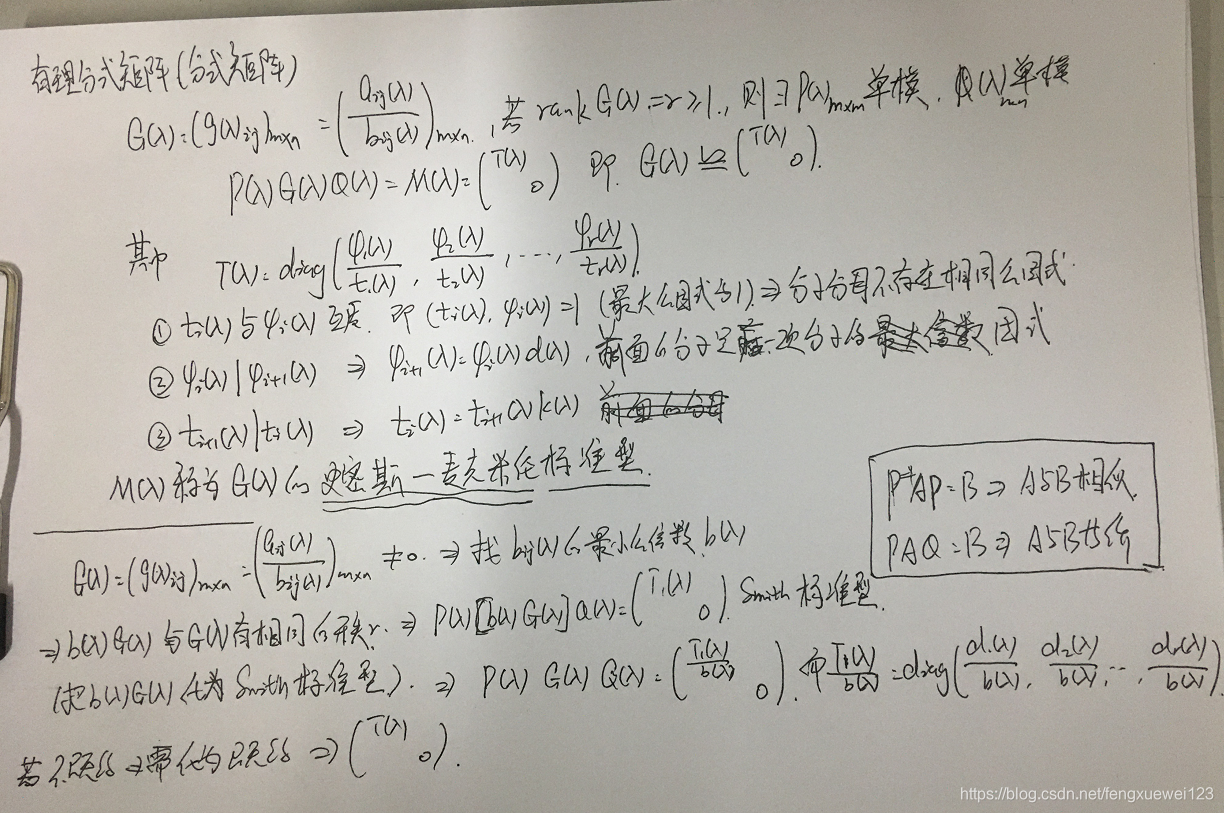 有理分式矩阵(分式矩阵)
G(λ)=(g(λ)ij)m×n =(aij(λ)/bij(λ))m×n, 若 rank G(λ)=r≥1, 则∃P(λ)m×m单模, Q(λ)n×n单模
P(λ)G(λ)Q(λ)=M(λ)=(T(λ) 0) 即 G(λ)≌(T(λ) 0).
其中 T(λ)=diag(φ1(λ)/t1(λ), φ2(λ)/t2(λ), ..., φr(λ)/tr(λ)).
① ti(λ)与φi(λ)互质. 即(ti(λ), φi(λ))=1 (最大公因式为1)⇒分子分母不存在相同公因式.
② φi(λ)|φi+1(λ) ⇒ φi+1(λ)=φi(λ)d(λ), 前面的分子是后一次分子的因式
③ ti+1(λ)|ti(λ) ⇒ ti(λ)=ti+1(λ)k(λ) 前面的分母
M(λ)称为G(λ)的史密斯—麦克米伦标准型.
P⁻¹AP=B ⇒ A与B相似.
PAQ=B⇒A与B等价
G(λ)=(g(λ)ij)m×n=(aij(λ)/bij(λ))m×n ≠0. ⇒ 找bij(λ)的最小公倍数b(λ)
⇒b(λ)G(λ)与G(λ)有相同的秩r. ⇒ P(λ)[b(λ)G(λ)]Q(λ)=(T1(λ) 0). Smith标准型.
(把b(λ)G(λ)化为Smith标准型). ⇒ P(λ)G(λ)Q(λ)=(T1(λ)/b(λ) 0). 而T1(λ)/b(λ)=diag(d1(λ)/b(λ), d2(λ)/b(λ), ..., dr(λ)/b(λ)).
若不既约⇒需化为既约⇒(T(λ) 0).
https://blog.csdn.net/fengxuewei123